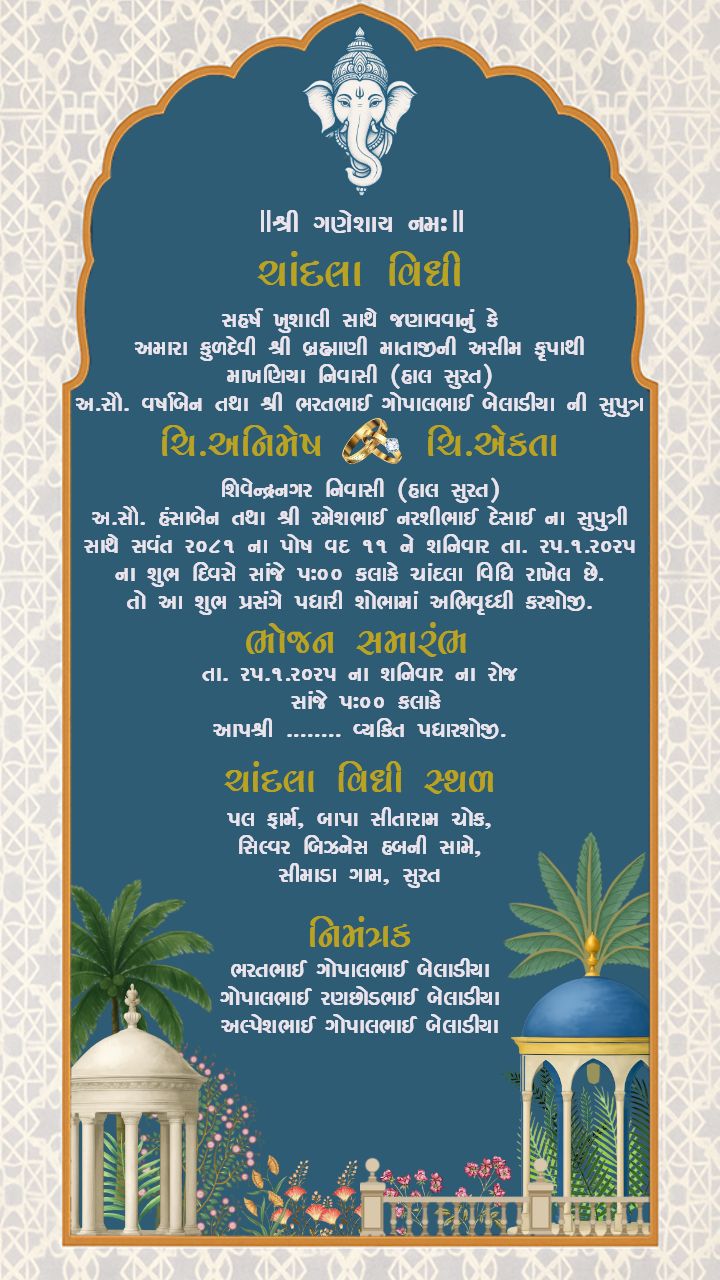 ||શ્રી ગણેશાય નમઃ||
ચાંદલા વિધી
સહર્ષ ખુશાલી સાથે જણાવવાનું કે
અમારા કુળદેવી શ્રી બ્રહ્માણી માતાજીની અસીમ કૃપાથી
માખણિયા નિવાસી (હાલ સુરત)
અ.સૌ. વર્ષાબેન તથા શ્રી ભરતભાઈ ગોપાલભાઈ બેલાડીયા ની સુપુત્ર
ચિ.અનિમેષ ચિ.એકતા
શિવેન્દ્રનગર નિવાસી (હાલ સુરત)
અ.સૌ. હંસાબેન તથા શ્રી રમેશભાઈ નરશીભાઈ દેસાઈ ના સુપુત્રી
સાથે સવંત ૨૦૮૧ ના પોષ વદ ૧૧ ને શનિવાર તા. ૨૫.૧.૨૦૨૫
ના શુભ દિવસે સાંજે ૫:૦૦ કલાકે ચાંદલા વિધિ રાખેલ છે.
તો આ શુભ પ્રસંગે પધારી શોભામાં અભિવૃધ્ધી કરશોજી.
ભોજન સમારંભ
તા. ૨૫.૧.૨૦૨૫ ના શનિવાર ના રોજ
સાંજે ૫:૦૦ કલાકે
આપશ્રી ........ વ્યકિત પધારશોજી.
ચાંદલા વિધી સ્થળ
પલ ફાર્મ, બાપા સીતારામ ચોક,
સિલ્વર બિઝનેસ હબની સામે,
સીમાડા ગામ, સુરત
નિમંત્રક
ભરતભાઈ ગોપાલભાઈ બેલાડીયા
ગોપાલભાઈ રણછોડભાઈ બેલાડીયા
અલ્પેશભાઈ ગોપાલભાઈ બેલાડીયા